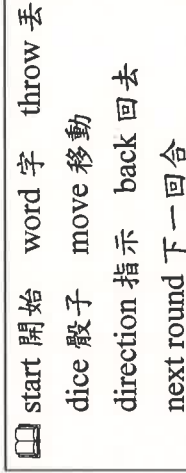 start 開始 word 字 throw 丟
dice 骰子 move 移動
direction 指示 back 回去
next round 下一回合